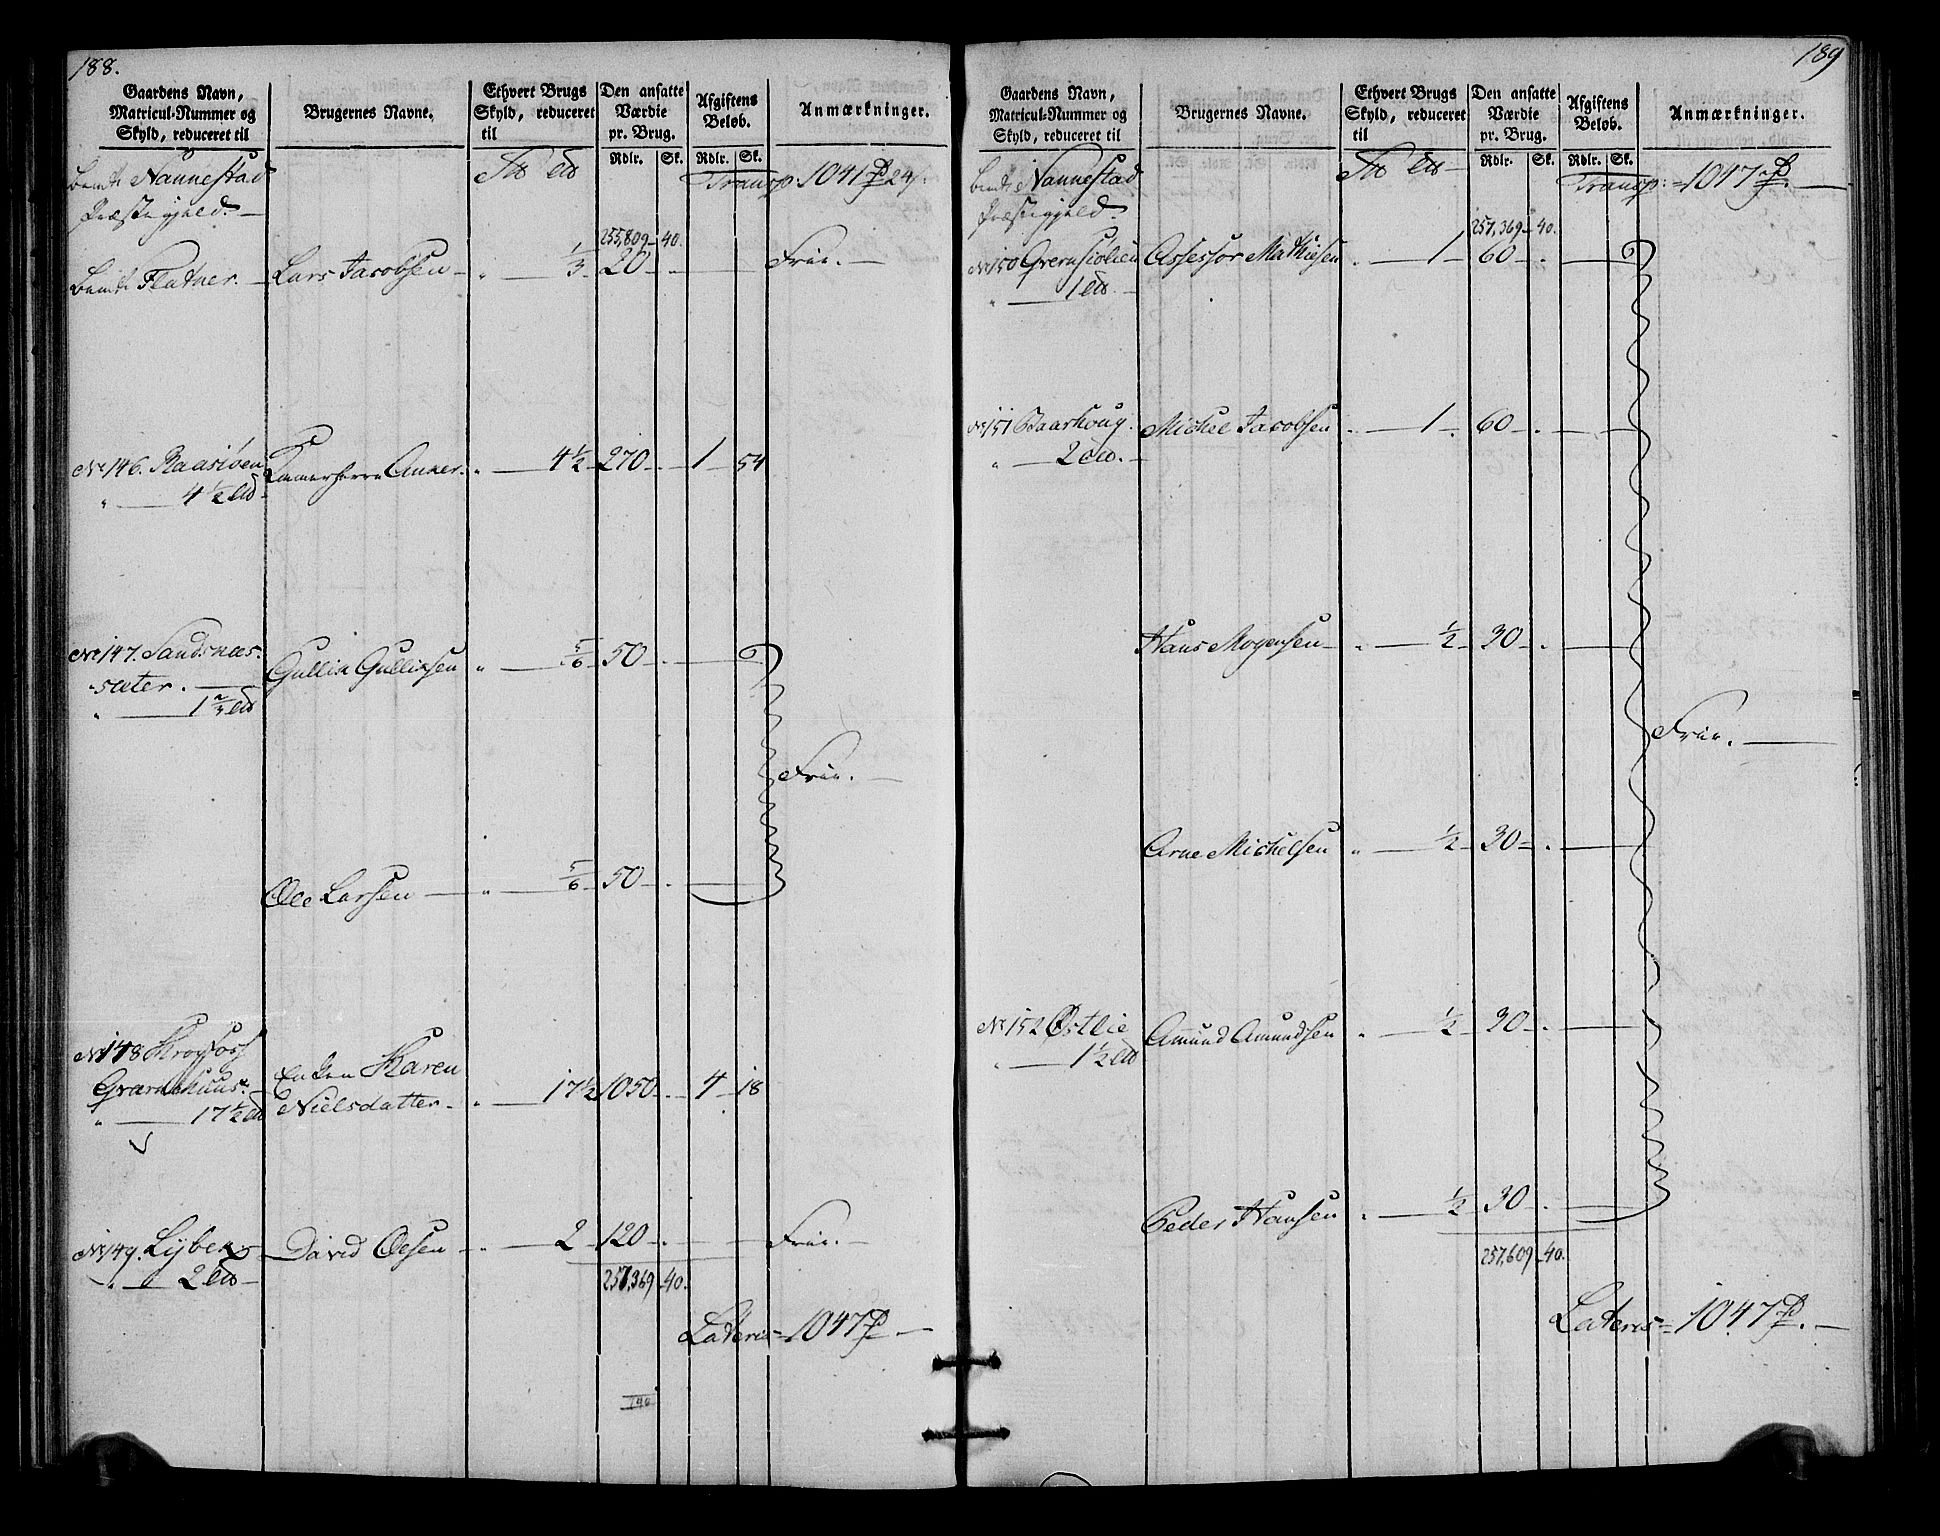 188.
Gaardens Navn, Matricul-Nummer og Skyld, reduceret til
Brugernes Navne.
Ethvert Brugs Skyld, reduceret til
Den ansatte Værdie pr. Brug.
Rdlr. Sk.
Afgiftens Beløb.
Rdlr. Sk.
Anmærkninger.
Nannestad
Transp: 1041 24
Præstegjeld.
255,809 40.
Flatner. Lars Jacobsen 1/3 20 Frie.
No 146. Raasiøen Kammerherre Anker. 4 1/2 270 1 54
4 1/2
No 147. Sandsnæs- Gullik Gulliksen 5/6 50
sæter.
1 2/3
Frie.
Ole Larsen 5/6 50
No 148 Krogfos
Enken Karen
Nielsdatter 17 1/2 1050 4 18
17 1/2
No 149. Lybek David Olsen 2 120 Frie.
2
257,369 40.
Lateris 1047
140
189
Gaardens Navn, Matricul-Nummer og Skyld, reduceret til
Brugernes Navne.
Ethvert Brugs Skyld, reduceret til
Den ansatte Værdie pr. Brug.
Rdlr. Sk.
Afgiftens Beløb.
Rdlr. Sk.
Anmærkninger.
Nannestad
Transp: 1047
Præstegjeld.
257,369 40.
No 150 Assessor Mathiesen 1 60
1
No 151 Baarhoug. Michel Jacobsen 1 60
2
Hans Mogensen 1/2 30
Frie.
Arne Michelsen 1/2 30
No 152 Østlie Amund Amundsen 1/2 30
1 1/2
Peder Hansen 1/2 30
257,609 40.
Lateris 1047